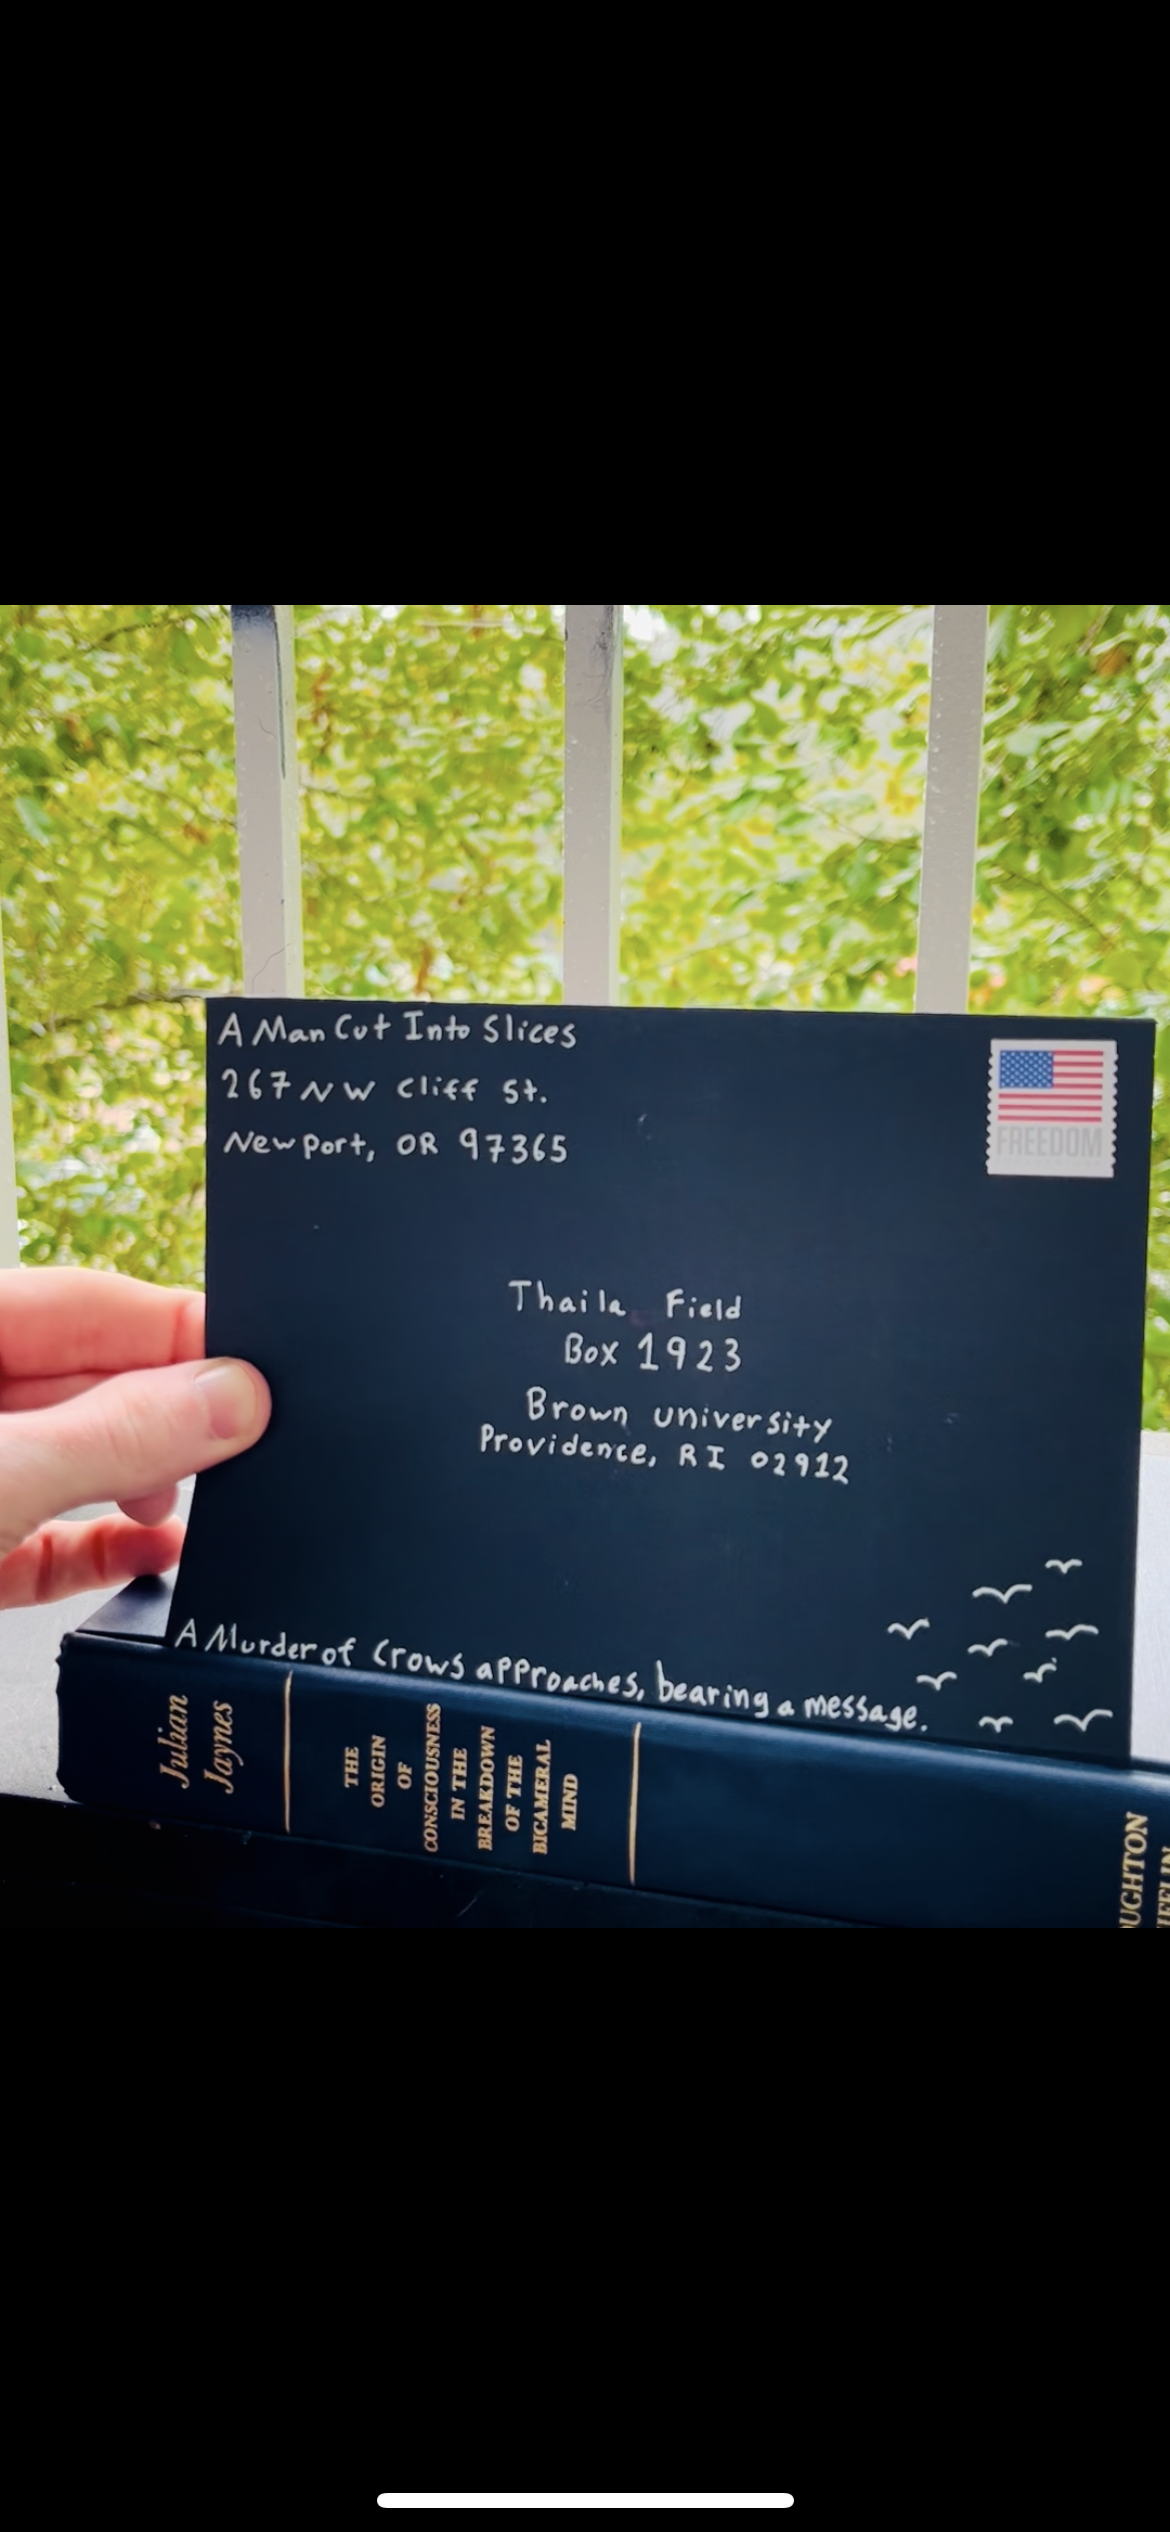 A Man Cut Into Slices
267 NW Cliff St.
Newport, OR 97365
FREEDOM
Thaila Field
Box 1923
Brown university
Providence, RI 02912
A Murder of Crows approaches, bearing a message.
Julian
Jaynes
THE
ORIGIN
OF
CONSCIOUSNESS
IN THE
BREAKDOWN
OF THE
BICAMERAL
MIND